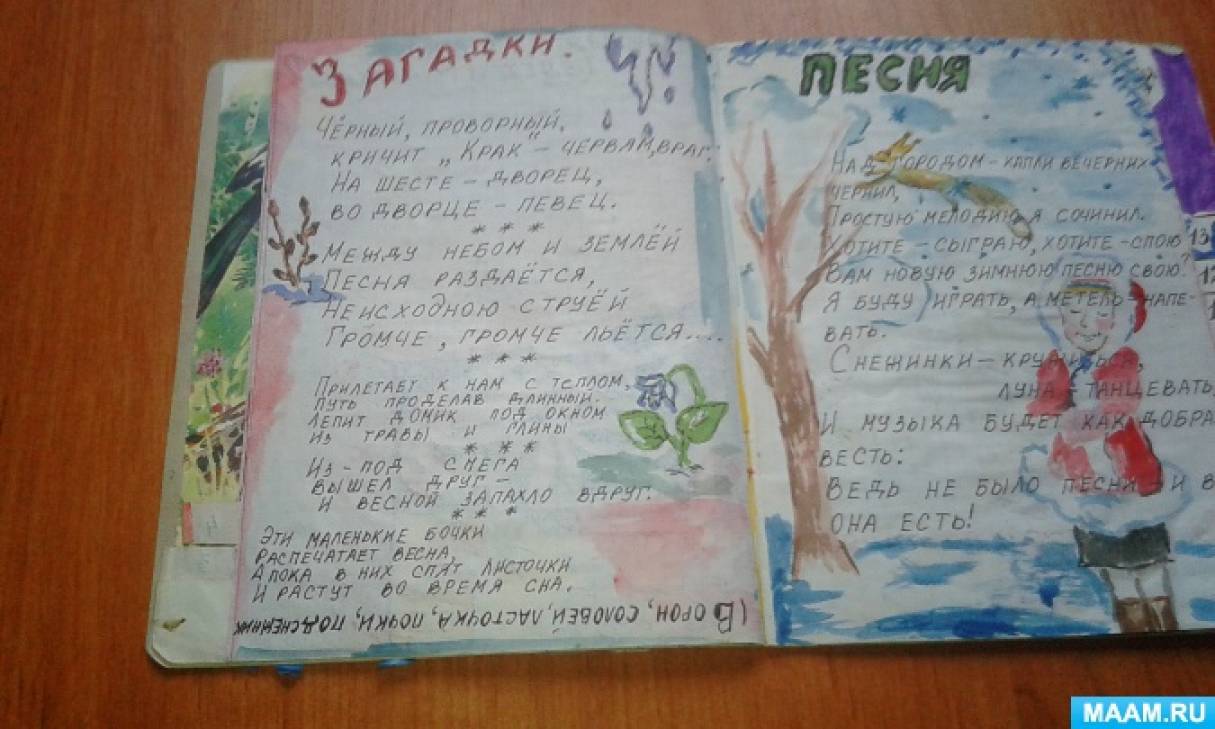 ЗАГАДКИ.
ЧЁРНЫЙ, ПРОВОРНЫЙ,
КРИЧИТ „КРАК" – ЧЕРВЯМ, ВРАГ.
НА ШЕСТЕ – ДВОРЕЦ,
ВО ДВОРЦЕ – ПЕВЕЦ.
* * *
МЕЖДУ НЕБОМ И ЗЕМЛЁЙ
ПЕСНЯ РАЗДАЁТСЯ,
НЕИСХОДНОЮ СТРУЁЙ
ГРОМЧЕ, ГРОМЧЕ ЛЬЁТСЯ....
* * *
ПРИЛЕТАЕТ К НАМ С ТЕПЛОМ,
ПУТЬ ПРОДЕЛАВ ДЛИННЫЙ.
ЛЕПИТ ДОМИК ПОД ОКНОМ
ИЗ ТРАВЫ И ГЛИНЫ
* * *
ИЗ-ПОД СНЕГА
ВЫШЕЛ ДРУГ –
И ВЕСНОЙ ЗАПАХЛО ВДРУГ.
* * *
ЭТИ МАЛЕНЬКИЕ БОЧКИ
РАСПЕЧАТАЕТ ВЕСНА,
А ПОКА В НИХ СПЯТ ЛИСТОЧКИ
И РАСТУТ ВО ВРЕМЯ СНА.
(ВОРОН, СОЛОВЕЙ, ЛАСТОЧКА, ПОЧКИ, ПОДСНЕЖНИК
ПЕСНЯ
НАД ГОРОДОМ – КАПЛИ ВЕЧЕРНИХ
ЧЕРНИЛ,
ПРОСТУЮ МЕЛОДИЮ Я СОЧИНИЛ.
ХОТИТЕ – СЫГРАЮ, ХОТИТЕ – СПОЮ
ВАМ НОВУЮ ЗИМНЮЮ ПЕСНЮ СВОЮ?
Я БУДУ ИГРАТЬ, А МЕТЕЛЬ – НАПЕ-
ВАТЬ.
СНЕЖИНКИ – КРУЖИТЬСЯ,
ЛУНА – ТАНЦЕВАТЬ,
И МУЗЫКА БУДЕТ КАК ДОБРА
ВЕСТЬ:
ВЕДЬ НЕ БЫЛО ПЕСНИ – И В
ОНА ЕСТЬ!
13
MAAM.RU